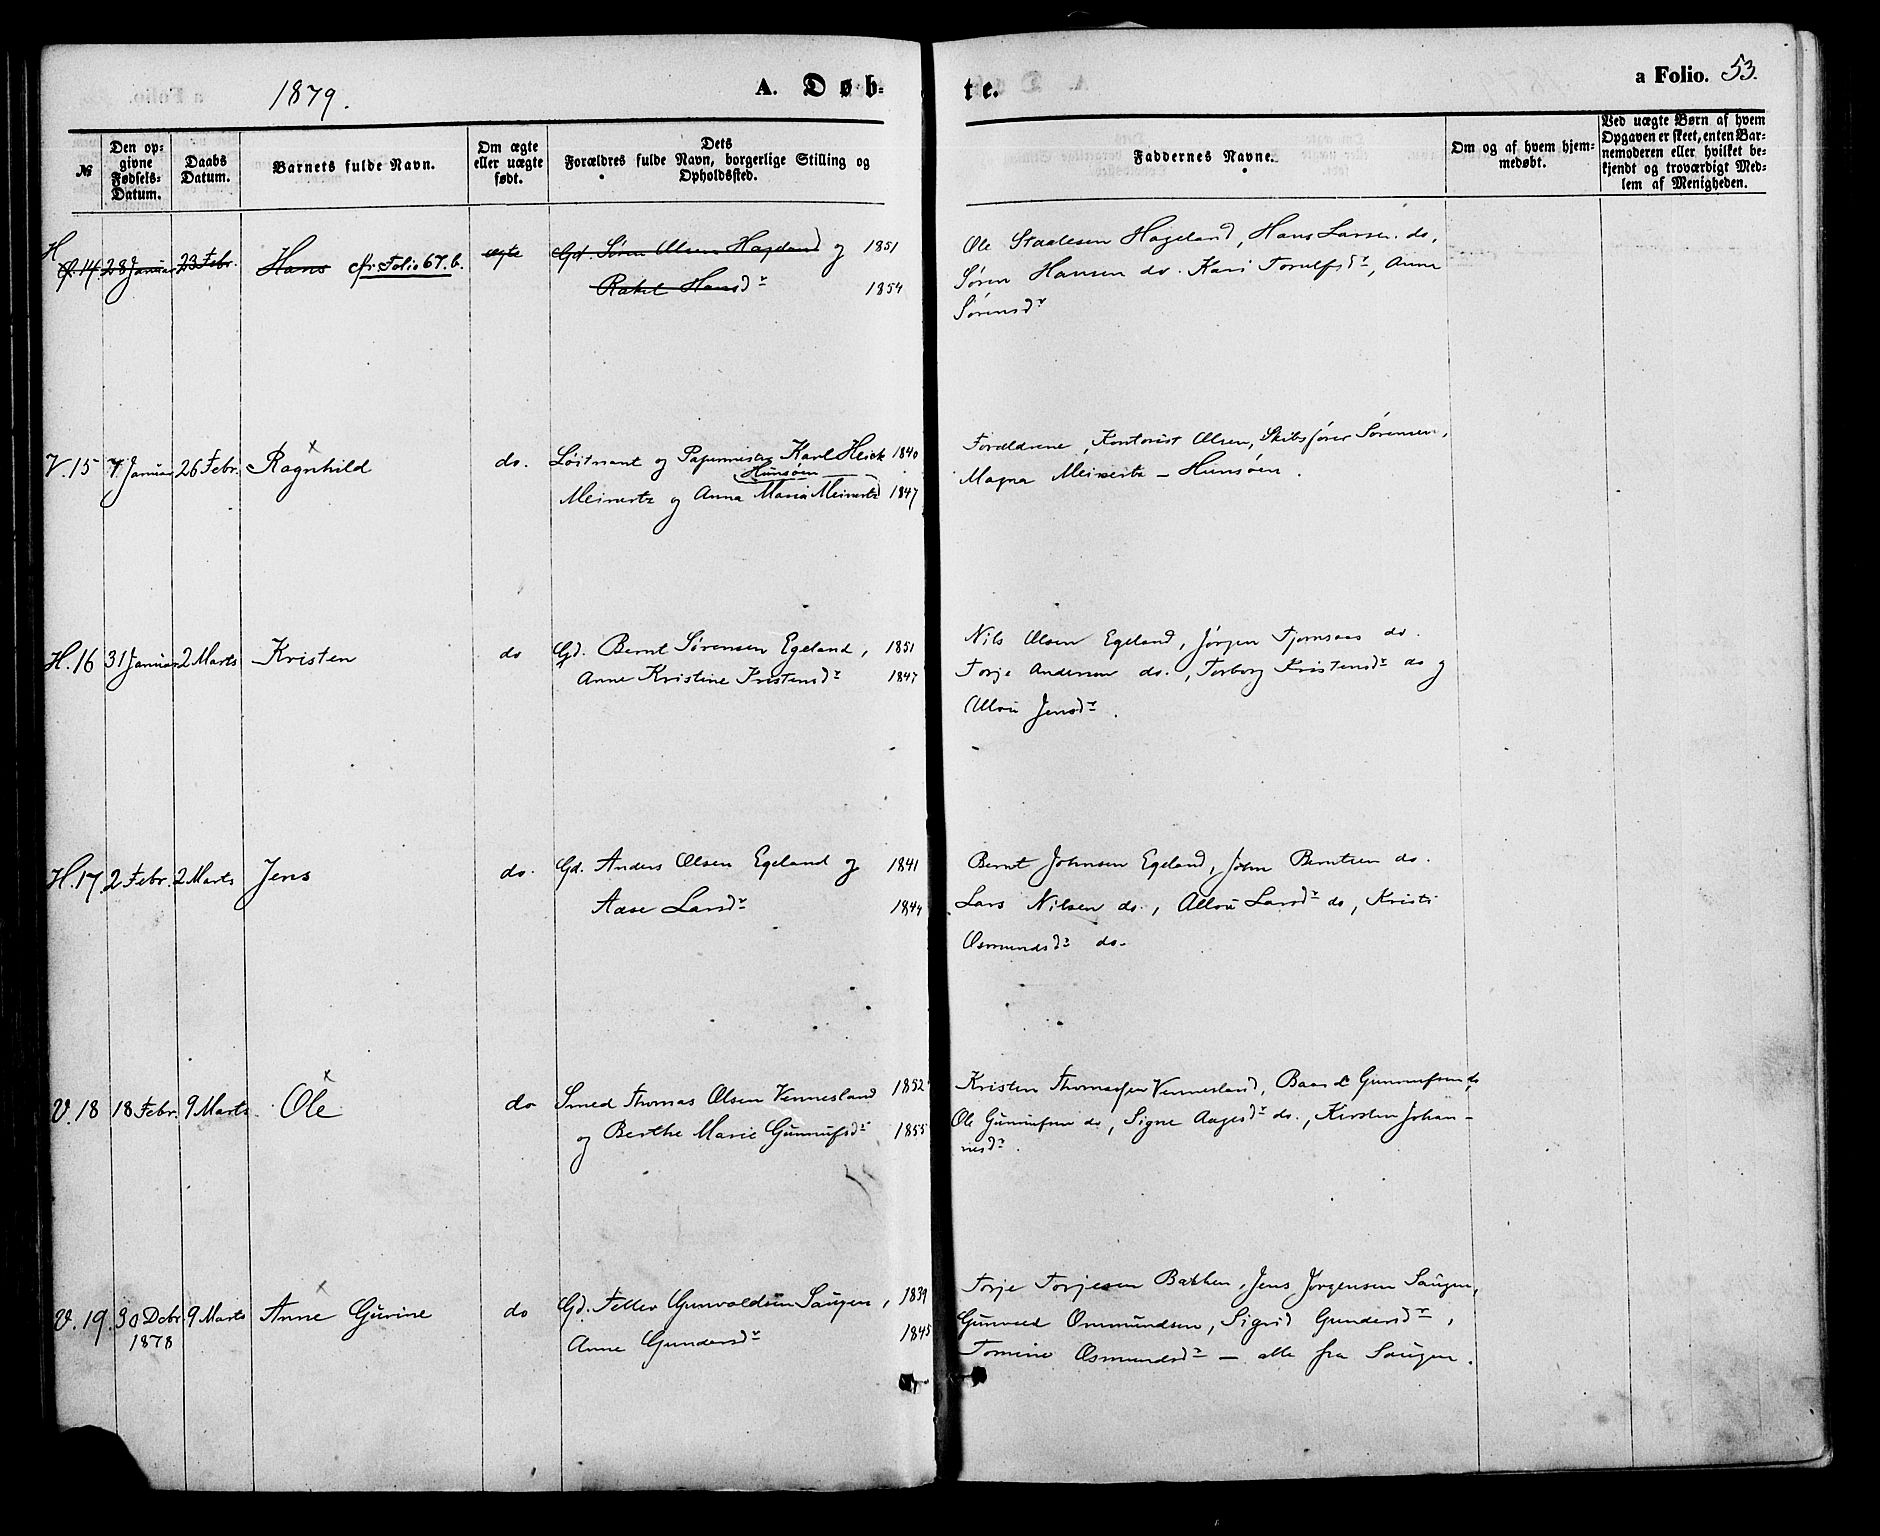 1879.
A. Døb-
te.
a Folio. 53.
№
Den op-
givne
Fødsels-
Datum.
Daabs
Datum.
Barnets fulde Navn.
Om ægte
eller uægte
født.
Dets
Forældres fulde Navn, borgerlige Stilling og
Opholdssted.
Faddernes Navne.
Om og af hvem hjem-
medøbt.
Ved uægte Børn af hvem
Opgaven er skeet, enten Bar-
nemoderen eller hvilket be-
kjendt og troværdigt Med-
lem af Menigheden.
H. 14 28 Januar 23 Febr. Hans cfr. Folio 67. b. ægte Gd. Søren Olsen Hageland og 1851
Rakel Hansdr 1854
Ole Staalesen Hageland, Hans Larsen do,
Søren Hansen do. Kari Torulfsdr, Anne
Sørensdr
V. 15 7 Januar 26 Febr. Ragnhild do. Løitnant og Papirmester Karl Heick 1840
Hunsøen
Meinertz og Anna Maria Meinertz 1847
Forældrene, Kontorist Olsen, Skibsfører Sørensen,
Magna Meinertz – Hunsøen.
H. 16 31 Januar 2 Marts Kristen do Gd. Bernt Sørensen Egeland, 1851
Anne Kristine Kristensdr 1847
Nils Olsen Egeland, Jørgen Tjomsaas do.
Torje Andersen do., Torborg Kristensdr do og
Jensdr.
H. 17. 2 Febr. 2 Marts Jens do. Gd. Anders Olsen Egeland og 1841
Aase Larsdr 1844
Bernt Johnsen Egeland, John Berntsen do.
Lars Nilsen do., Larsdr do, Kristi
Osmundsdr do.
V. 18 18 Febr. 9 Marts Ole do Smed Thomas Olsen Vennesland 1852
og Berthe Marie Gunnufsdr 1855
Kristen Thomassen Vennesland, Baard Gunnufsen do
Ole Gunnufsen do, Signe Aagesdr do., Kirsten Johan-
nesdr.
V. 19. 30 Debr. 9 Marts Anne Gurine do Gd. Tellev Gunvaldsen Saugen, 1839
1878
Anne Gundersdr 1845
Torje Torjesen Bakken, Jens Jørgensen Saugen,
Gunvald Ommundsen, Sigrid Gundersdr,
Tomine Osmundsdr – alle fra Saugen.